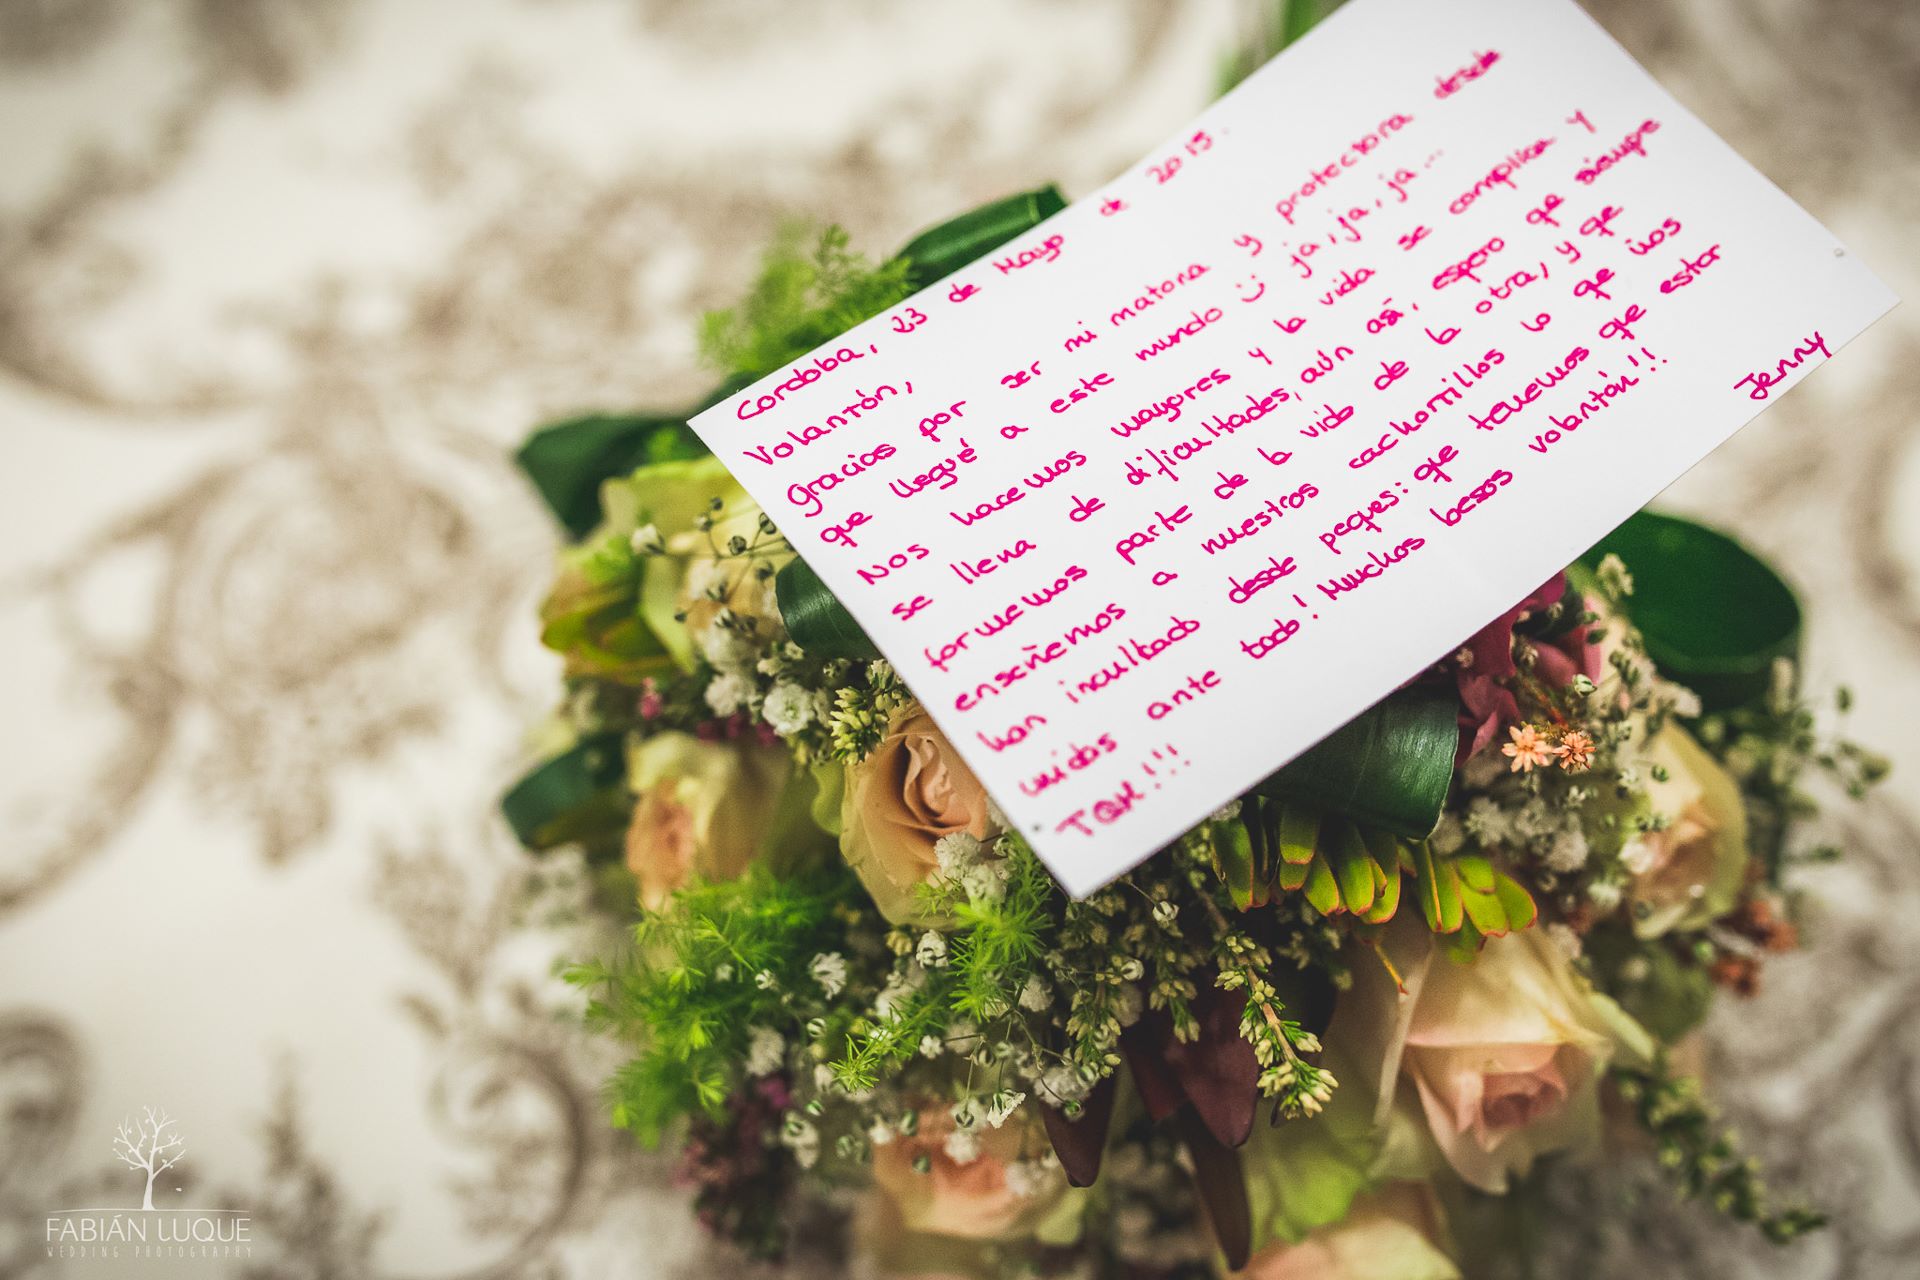 Cordoba, 23 de Mayo de 2015.
Volantón,
Gracias por ser mi matona y protectora desde
que llegué a este mundo :) ja, ja, ja, ja...
Nos hacemos mayores y la vida se complica y
se llena de dificultades, aún así, espero que siempre
formemos parte de la vida de la otra, y que
enseñemos a nuestros cachorrillos lo que nos
han inculcado desde peques: que tenemos que estar
unidas ante todo! Muchos besos volantón!!
TQM!!!
Jenny
FABIÁN LUQUE
WEDDING PHOTOGRAPHY